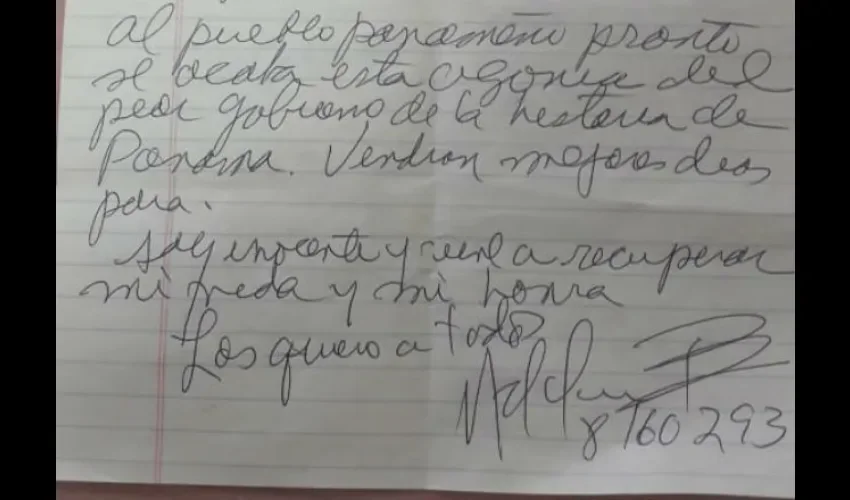 al pueblo panameño pronto
se acaba esta agonia del
peor gobierno de la historia de
Panama. Vendran mejores dias
para.
Soy inocente y vine a recuperar
mi y mi honra
Los quiero a todos
8 160 293